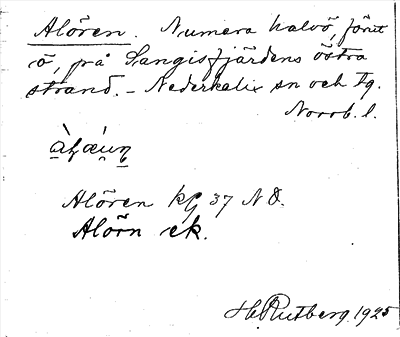 Alören. Numera halvö, förut
ö, på Sangisfjärdens östra
strand. – Nederkalix sn och tg.
Norrb. l.
Alören kG 37 NO.
Alörn ek.
H. Rutberg 1925